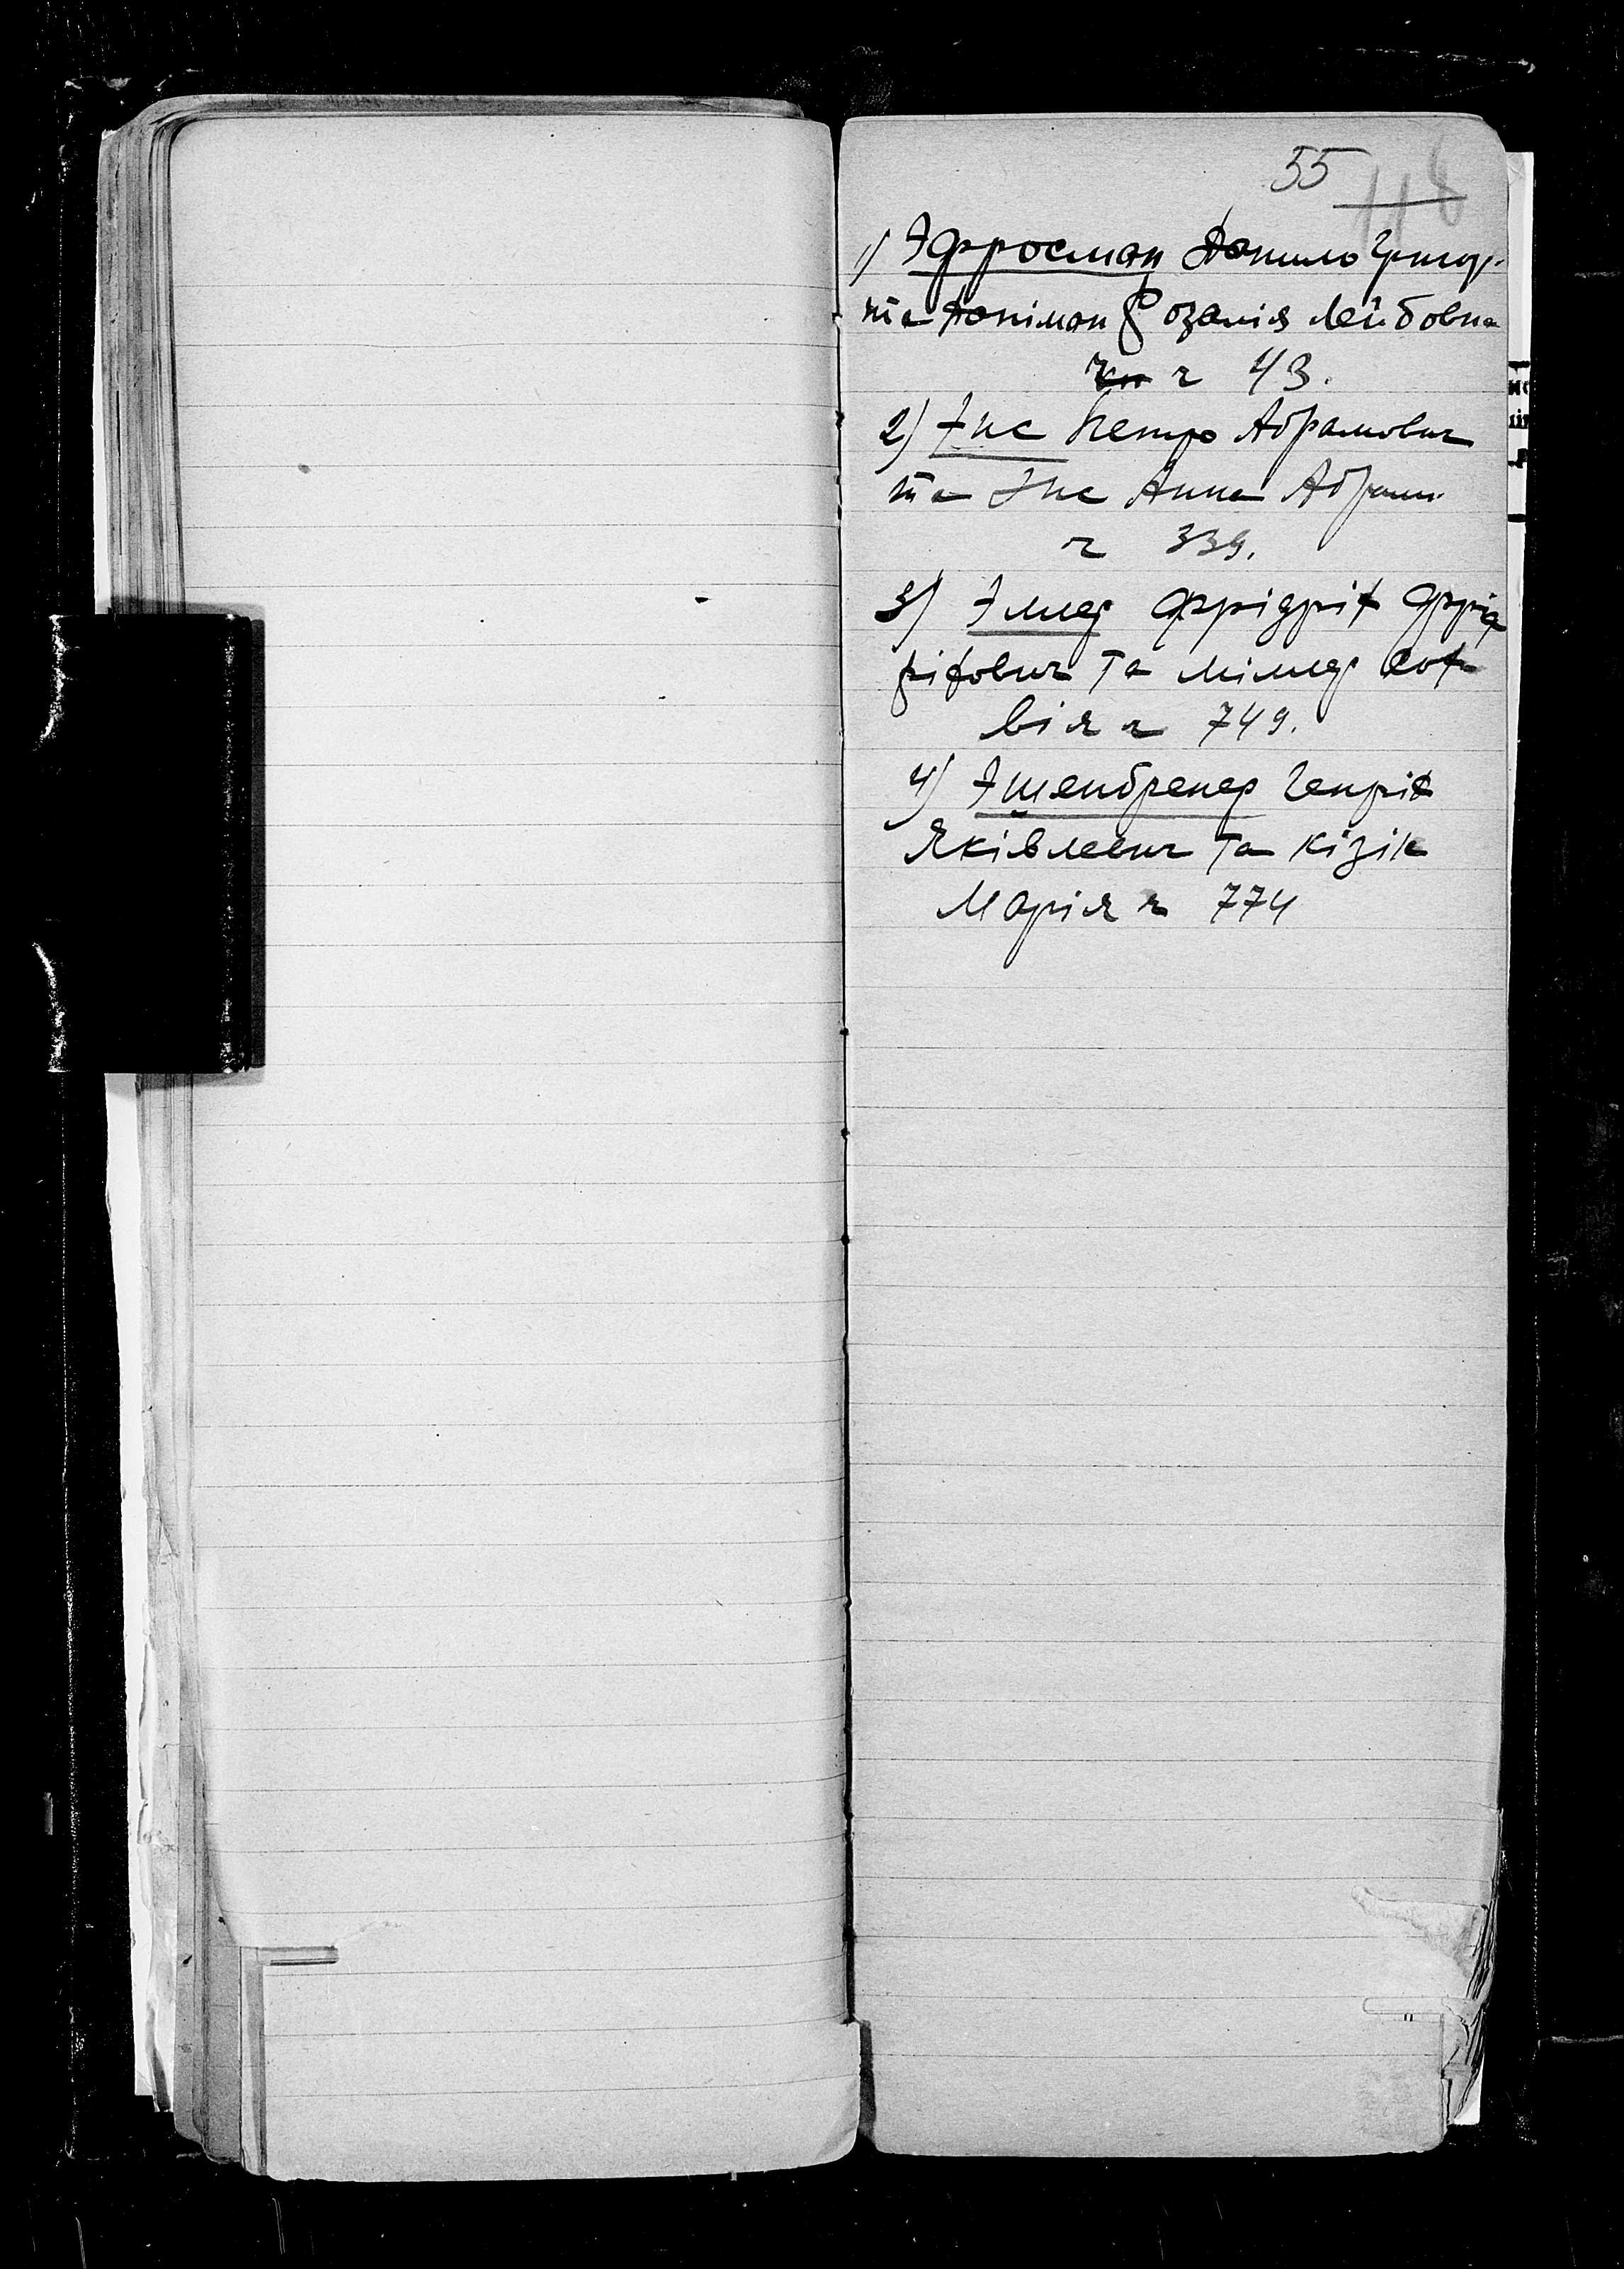 55
118
1) Эфросман Данило Григор.
та Таніман Розалія Лейбовна
ч 43.
2) Энс Петро Абрамович
та Энс Анна Абрам.
ч 339.
3) Эммер Фрідріх Фрід
ріхович та Міллер Соф
вія ч 749.
4) Эшенбренер Генріх
Яківлевич та Кізік
Марія ч 774